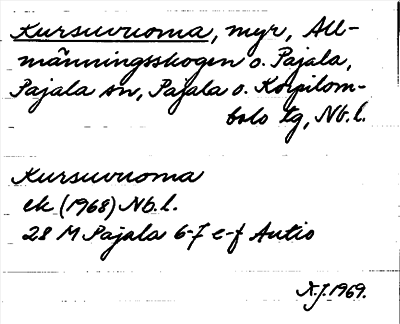 Kursuvuoma, myr, All-
männingsskogen o. Pajala,
Pajala sn, Pajala o. Korpilom-
bolo tg, Nb.l.
Kursuvuoma
ek (1968) Nb.l.
28 M Pajala 6-7 e-f Autio
N.J. 1969.